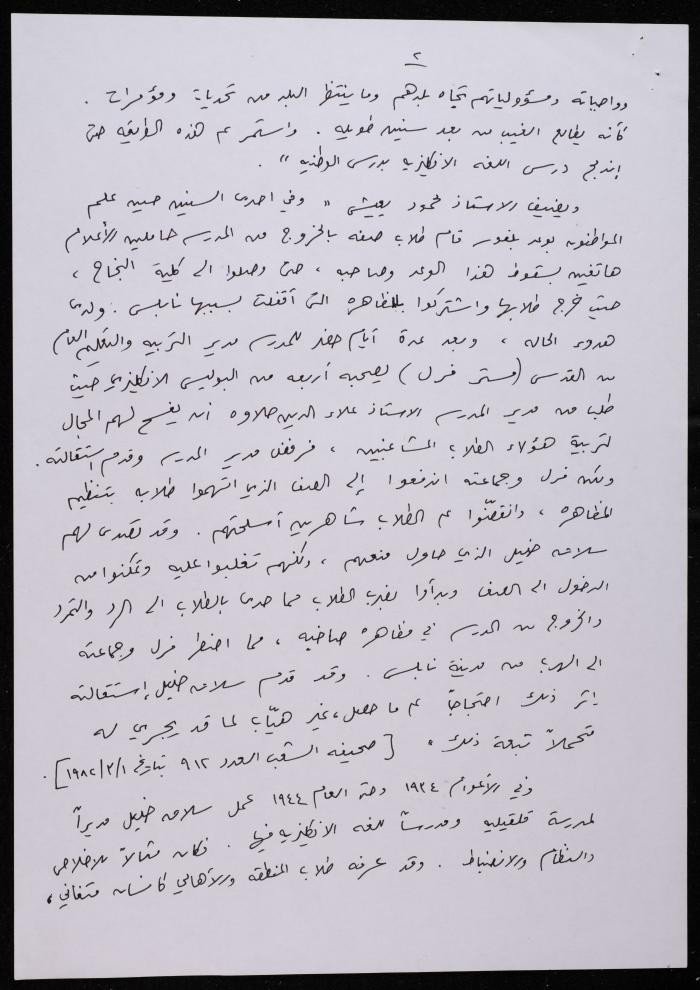 ٢
وواجباته ومسؤولياتهم تجاه بلدهم وما ينتظر البلد من تحديات ومؤمرات .
كأنه يطالع الغيب من بعد سنين طويله . واستمر عم هذه الطريقه حتى
إندمج درس اللغه الانكليزيه بدرس الوطنيه " .
ويضيف الاستاذ محمود يعيش " وفي احدى السنين حين علم
المواطنون بوعد بلفور قام طلاب صفه بالخروج من المدرسه حاملين الأعلام
هاتفين بسقوط هذا الوعد وصاحبه ، حتى وصلوا الى كلية النجاح ،
حيث خرج طلابها واشتركوا بالمظاهره التى أقفلت بسببها نابلس . ولدى
هدوء الحاله ، وبعد عدة أيام حضر للمدرسه مدير التربيه والتعليم العام
من القدس (مستر فرل) يصحبه أربعه من البوليس الانكليزي حيث
طلب من مدير المدرسه الاستاذ علاء الدين حلاوه أن يفسح لهم المجال
لتربية هؤلاء الطلاب المشاغبين ، فرفض مدير المدرسه وقدم استقالته .
ولكن فرل وجماعته اندفعوا إلى الصف الذي اتهموا طلابه بتنظيم
المظاهره ، وانقضّوا عم الطلاب شاهرين أسلحتهم . وقد تصدى لهم
سلامه خليل الذي حاول منعهم ، ولكنهم تغلبوا عليه وتمكنوا من
الدخول الى الصف وبدأوا بضرب الطلاب مما حدى بالطلاب الى الرد والتمرد
والخروج من المدرسه في مظاهره صاخبه ، مما اضطر فرل وجماعته
الى الهرب من مدينة نابلس . وقد قدم سلامه خليل إستقالته
إثر ذلك احتجاجاً عم ما حصل ، غير هيّاب لما قد يجري له
متحملاً تبعة ذلك " [صحيفه الشعب العدد ٩١٢ تاريخ ١/٣/١٩٨٢] .
وفي الأعوام ١٩٣٤ وحتى العام ١٩٤٤ عمل سلامه خليل مديراً
لمدرسة قلقيليه ومدرساً للغه الانكليزيه فيها . فكان مثالاً للاخلاص
والنظام والانضباط . وقد عرفه طلاب المنطقه والأهالي كانسان متفاني ،